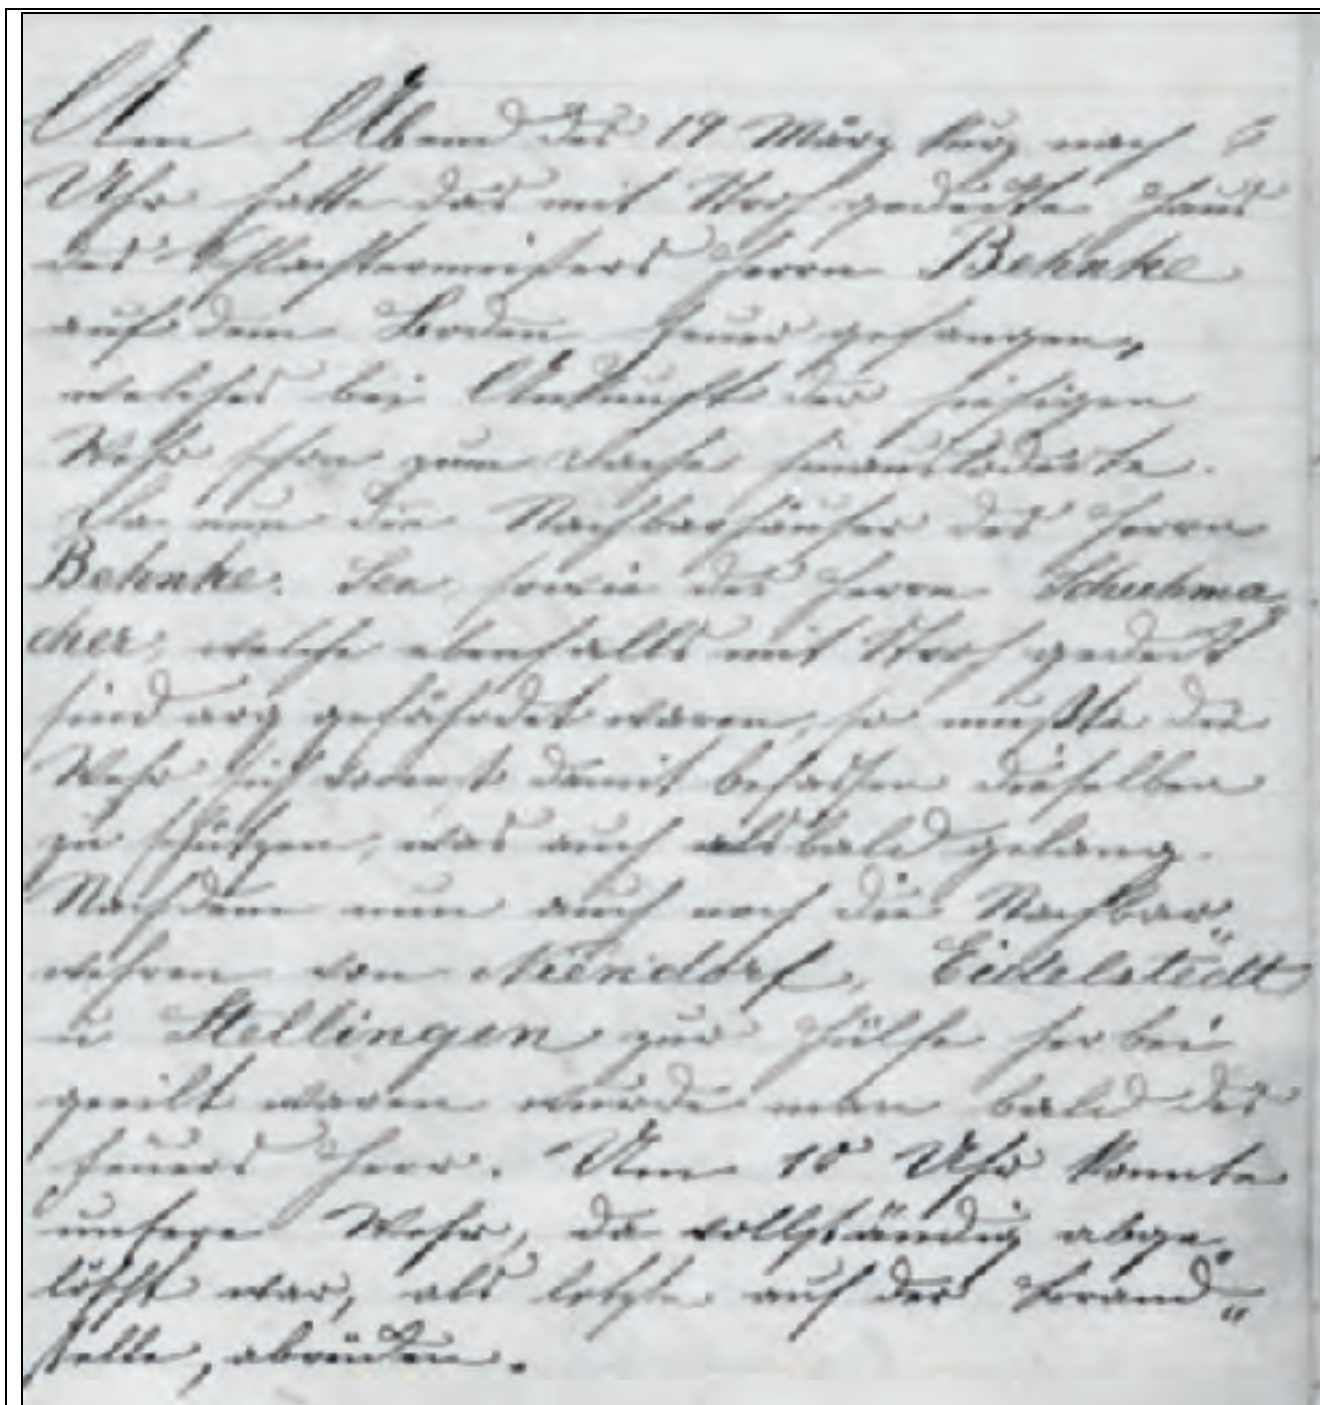 Am Abend des 19 März kurz nach 6
Uhr hatte das mit Stroh gedeckte Haus
des Schlachtermeisters Herrn Behnke
auf dem Boden Feuer gefangen,
welches bei Ankunft der hiesigen
Wehr schon zum Dache hinausloderte.
Da nun die Nachbarhäuser des Herrn
Behnke. Sen sowie des Herrn Schuhma„
cher, welche ebenfalls mit Stroh gedeckt
sind arg gefährdet waren, so mußte die
Wehr sich vorerst damit befassen dieselben
zu schützen, was auch alsbald gelang.
Nachdem nun auch noch die Nachbar„
wehren von Niendorf, Eidelstedt
u Stellingen zur Hülfe herbei
geeilt waren wurde man bald des
Feuers Herr. Um 10 Uhr konnte
unsere Wehr, da vollständig abge„
löscht war, als letzte auf der Brand„
stelle, abrücken.